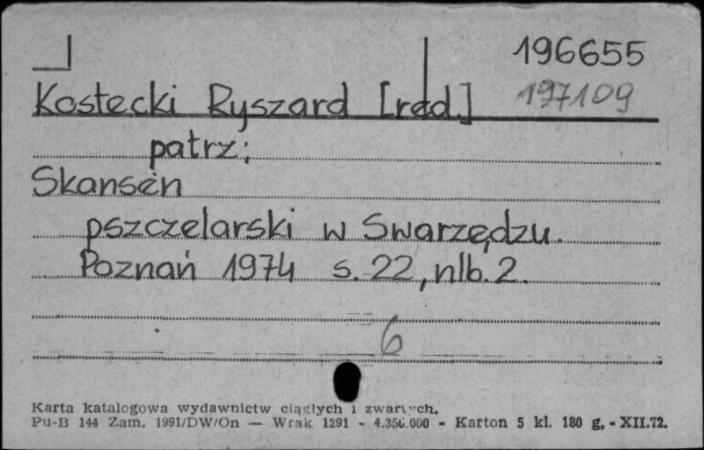 196655
Kostecki Ryszard [red.] 197109
patrz:
Skansen
pszczelarski w Swarzędzu.
Poznań 1974 s. 22, nlb. 2.
6
Karta katalogowa wydawnictw ciągłych i zwartych.
Pu-B 144 Zam. 1991/DW/On — Wrak 1291 - 4.356.000 - Karton 5 kl. 180 g. - XII.72.